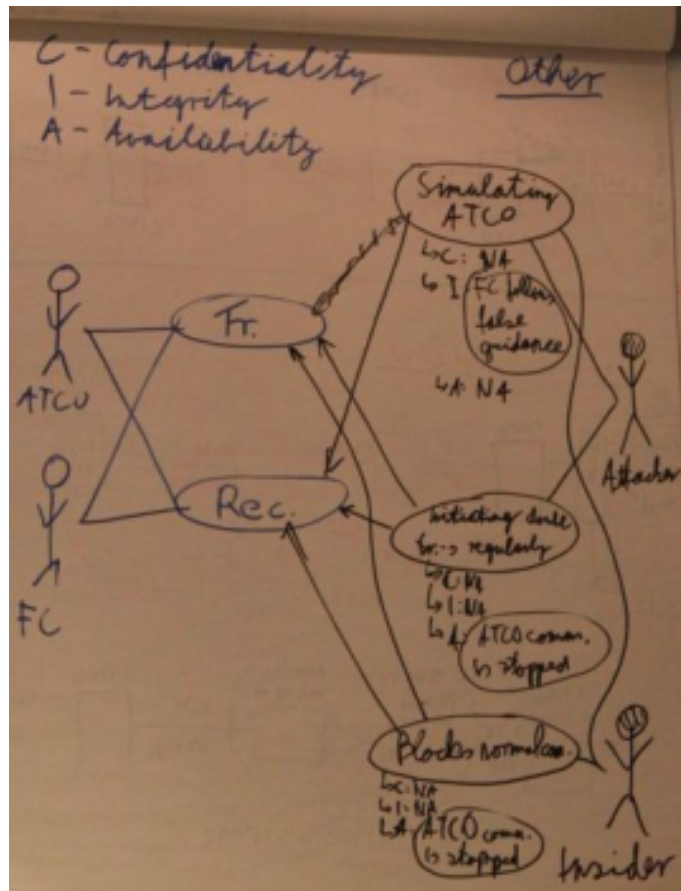 C - Confidentiality
I - Integrity
A - Availability
Other
Simulating
ATCO
↳C: NA
↳I: FC follows
false
guidance
↳A: NA
Tr.
ATCO
Attacker
Rec.
FC
Initiating
Tr.-s regularly
↳C: NA
↳I: NA
↳A: ATCO comm.
is stopped
Blocks normal com.
↳C: NA
↳I: NA
↳A: ATCO comm.
is stopped
Insider